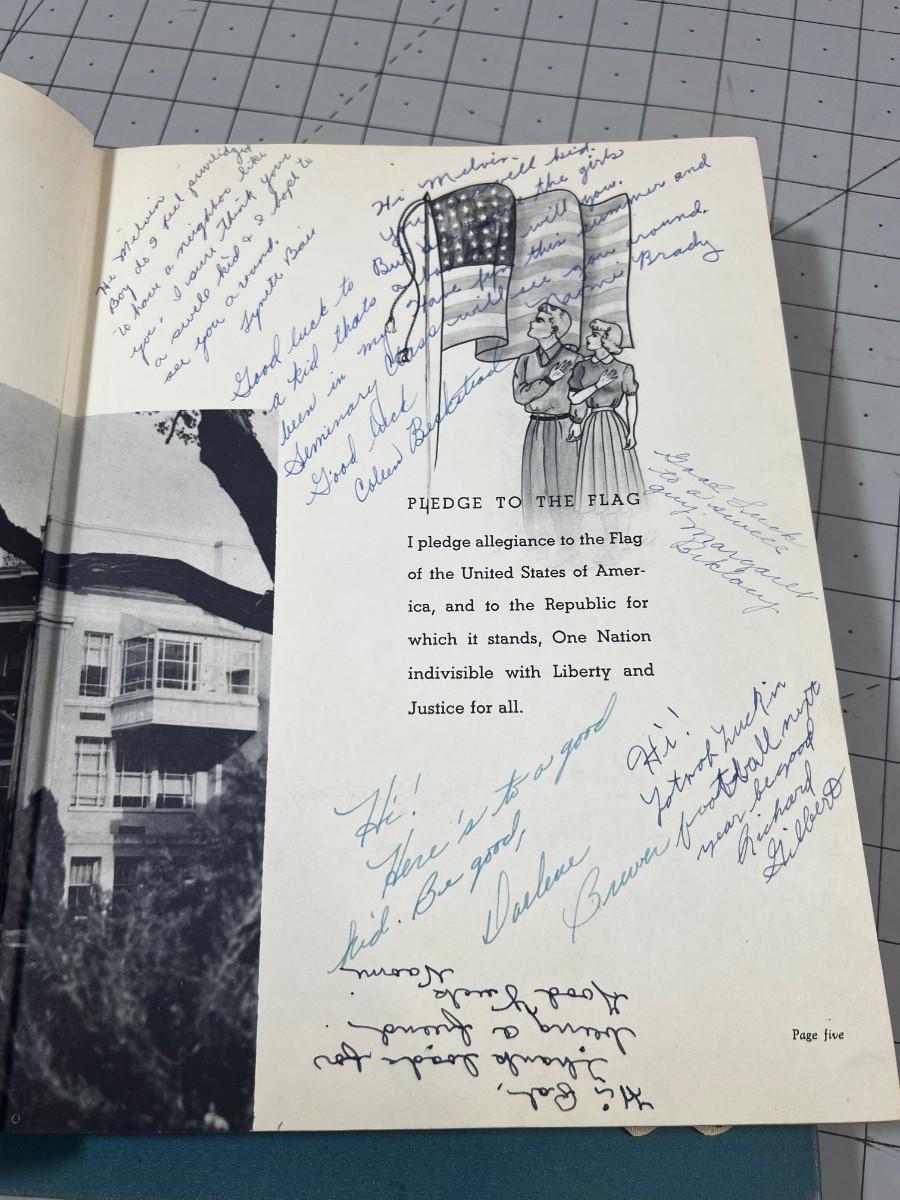 Hi Melvin
Boy do I feel priviledged
to have a neighbor like
you, I sure think your
a swele kid & I hope to
see you around.
Lynete Bair
Hi Melvin.
You swell kid.
But the girls
will you.
Have fun this summer and
will see you around.
Naomi Brady
Good luck to
a kid thats
been in my
Seminary Class
Good luck
Coleen Beckstead
Good Luck
to a swell
guy
Margaret
PLEDGE TO THE FLAG
I pledge allegiance to the Flag
of the United States of Amer-
ica, and to the Republic for
which it stands, One Nation
indivisible with Liberty and
Justice for all.
Hi!
Here's to a good
kid. Be good,
Darlene
Brewer
Hi!
Lotsof Luck in
football next
year be good
Richard
Gilbert
Hi Pal,
Thank loads for
being a friend.
Good Luck
Naomi
Page five